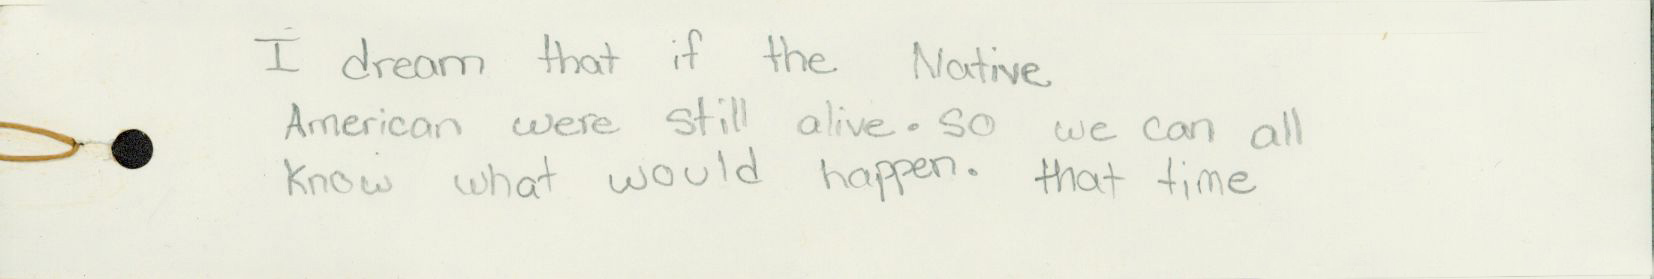 I dream that if the Native
American were still alive. so we can all
Know what would happen. that time